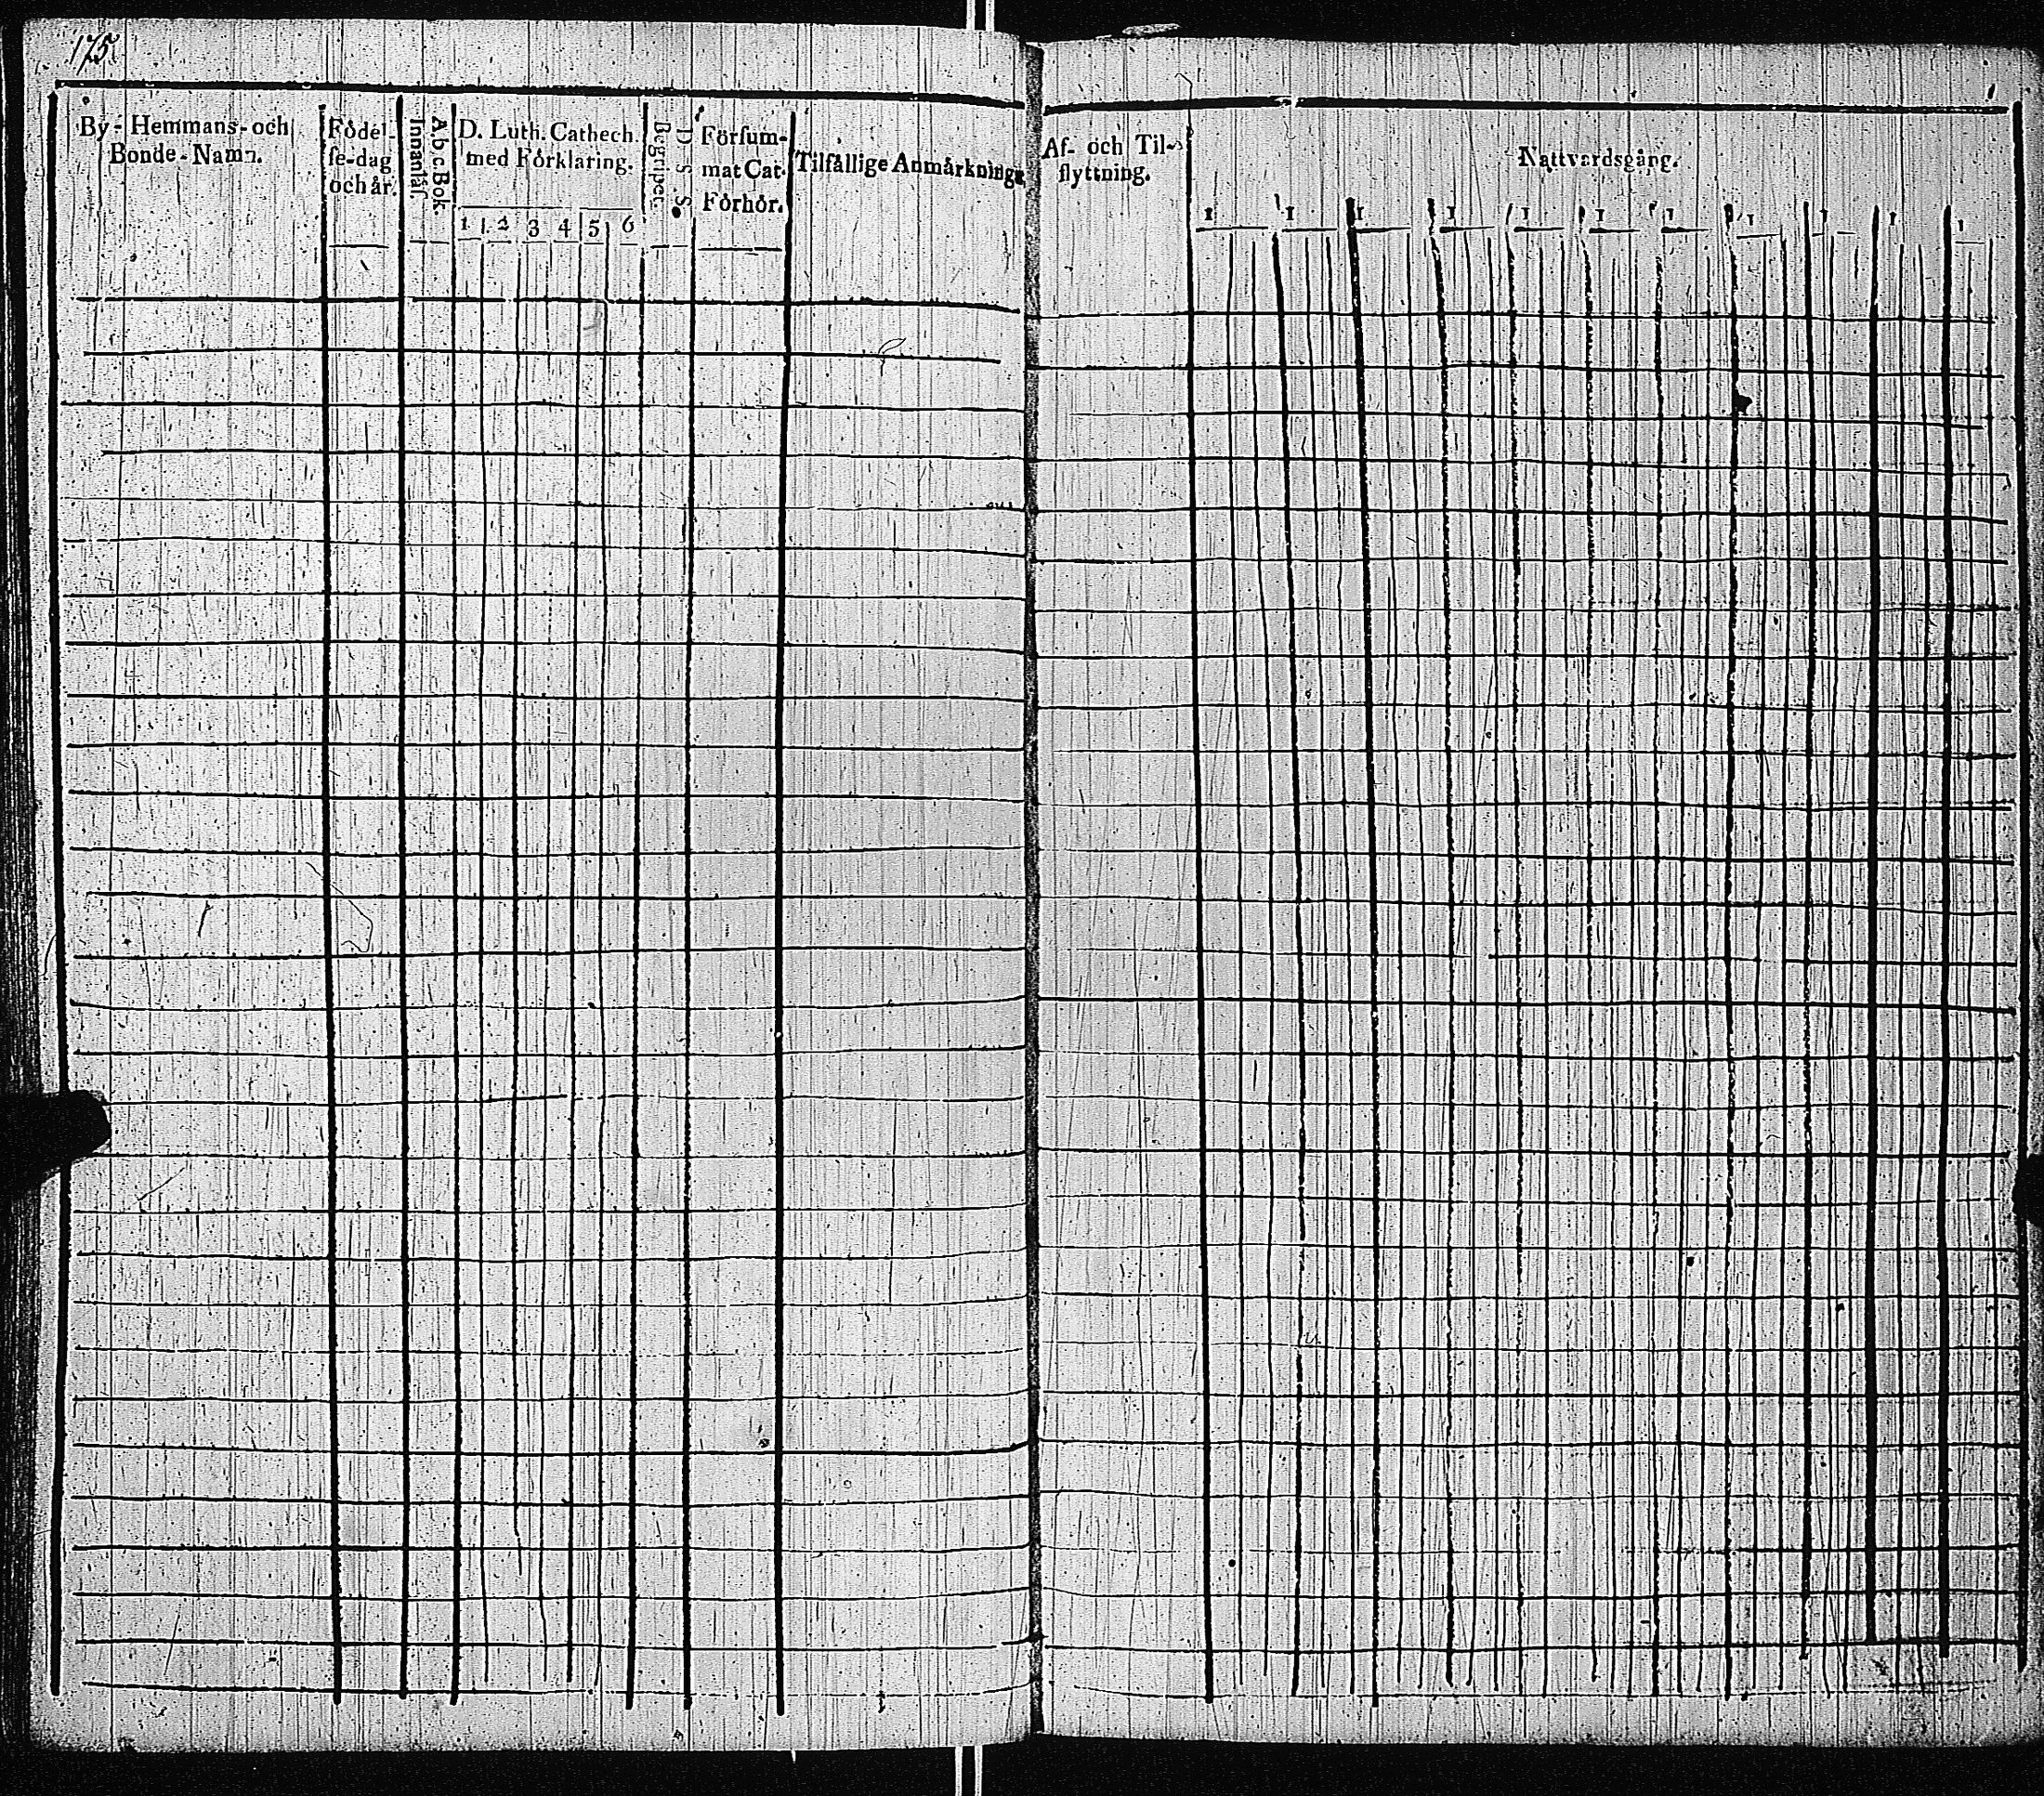 175
By- Hemmans- och
Bonde-Namn.
Födel-
ſe-dag
och år.
Innanläſ.
A.b.c.Bok.
D. Luth. Cathech.
med Förklaring.
1 1 2 3 4 5 6
Begripet.
D. S. S.
Förſum-
mat Cat.
Förhör.
Tilfällige Anmärkning.
Af- och Til-
flyttning.
Nattvardsgång.
1 1 1 1 1 1 1 1 1 1 1